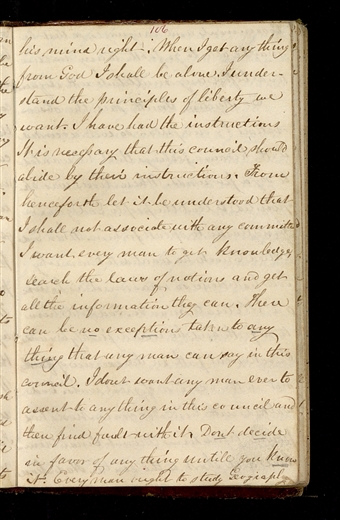 106
his mind right. When I get any thing
from God I shall be alone. I under-
stand the principles of liberty we
want. I have had the instructions
It is necessary that this council should
abide by their instructions. From
henceforth let it be understood that
I shall not associate with any committee
I want every man to get knowledge,
search the laws of nations and get
all the information they can. There
can be no exceptions taken to any
thing that any man can say in this
council. I dont want any man ever to
assent to any thing in this council and
then find fault with it. Dont decide
in favor of any thing untile you know
it. Every man ought to study Geography